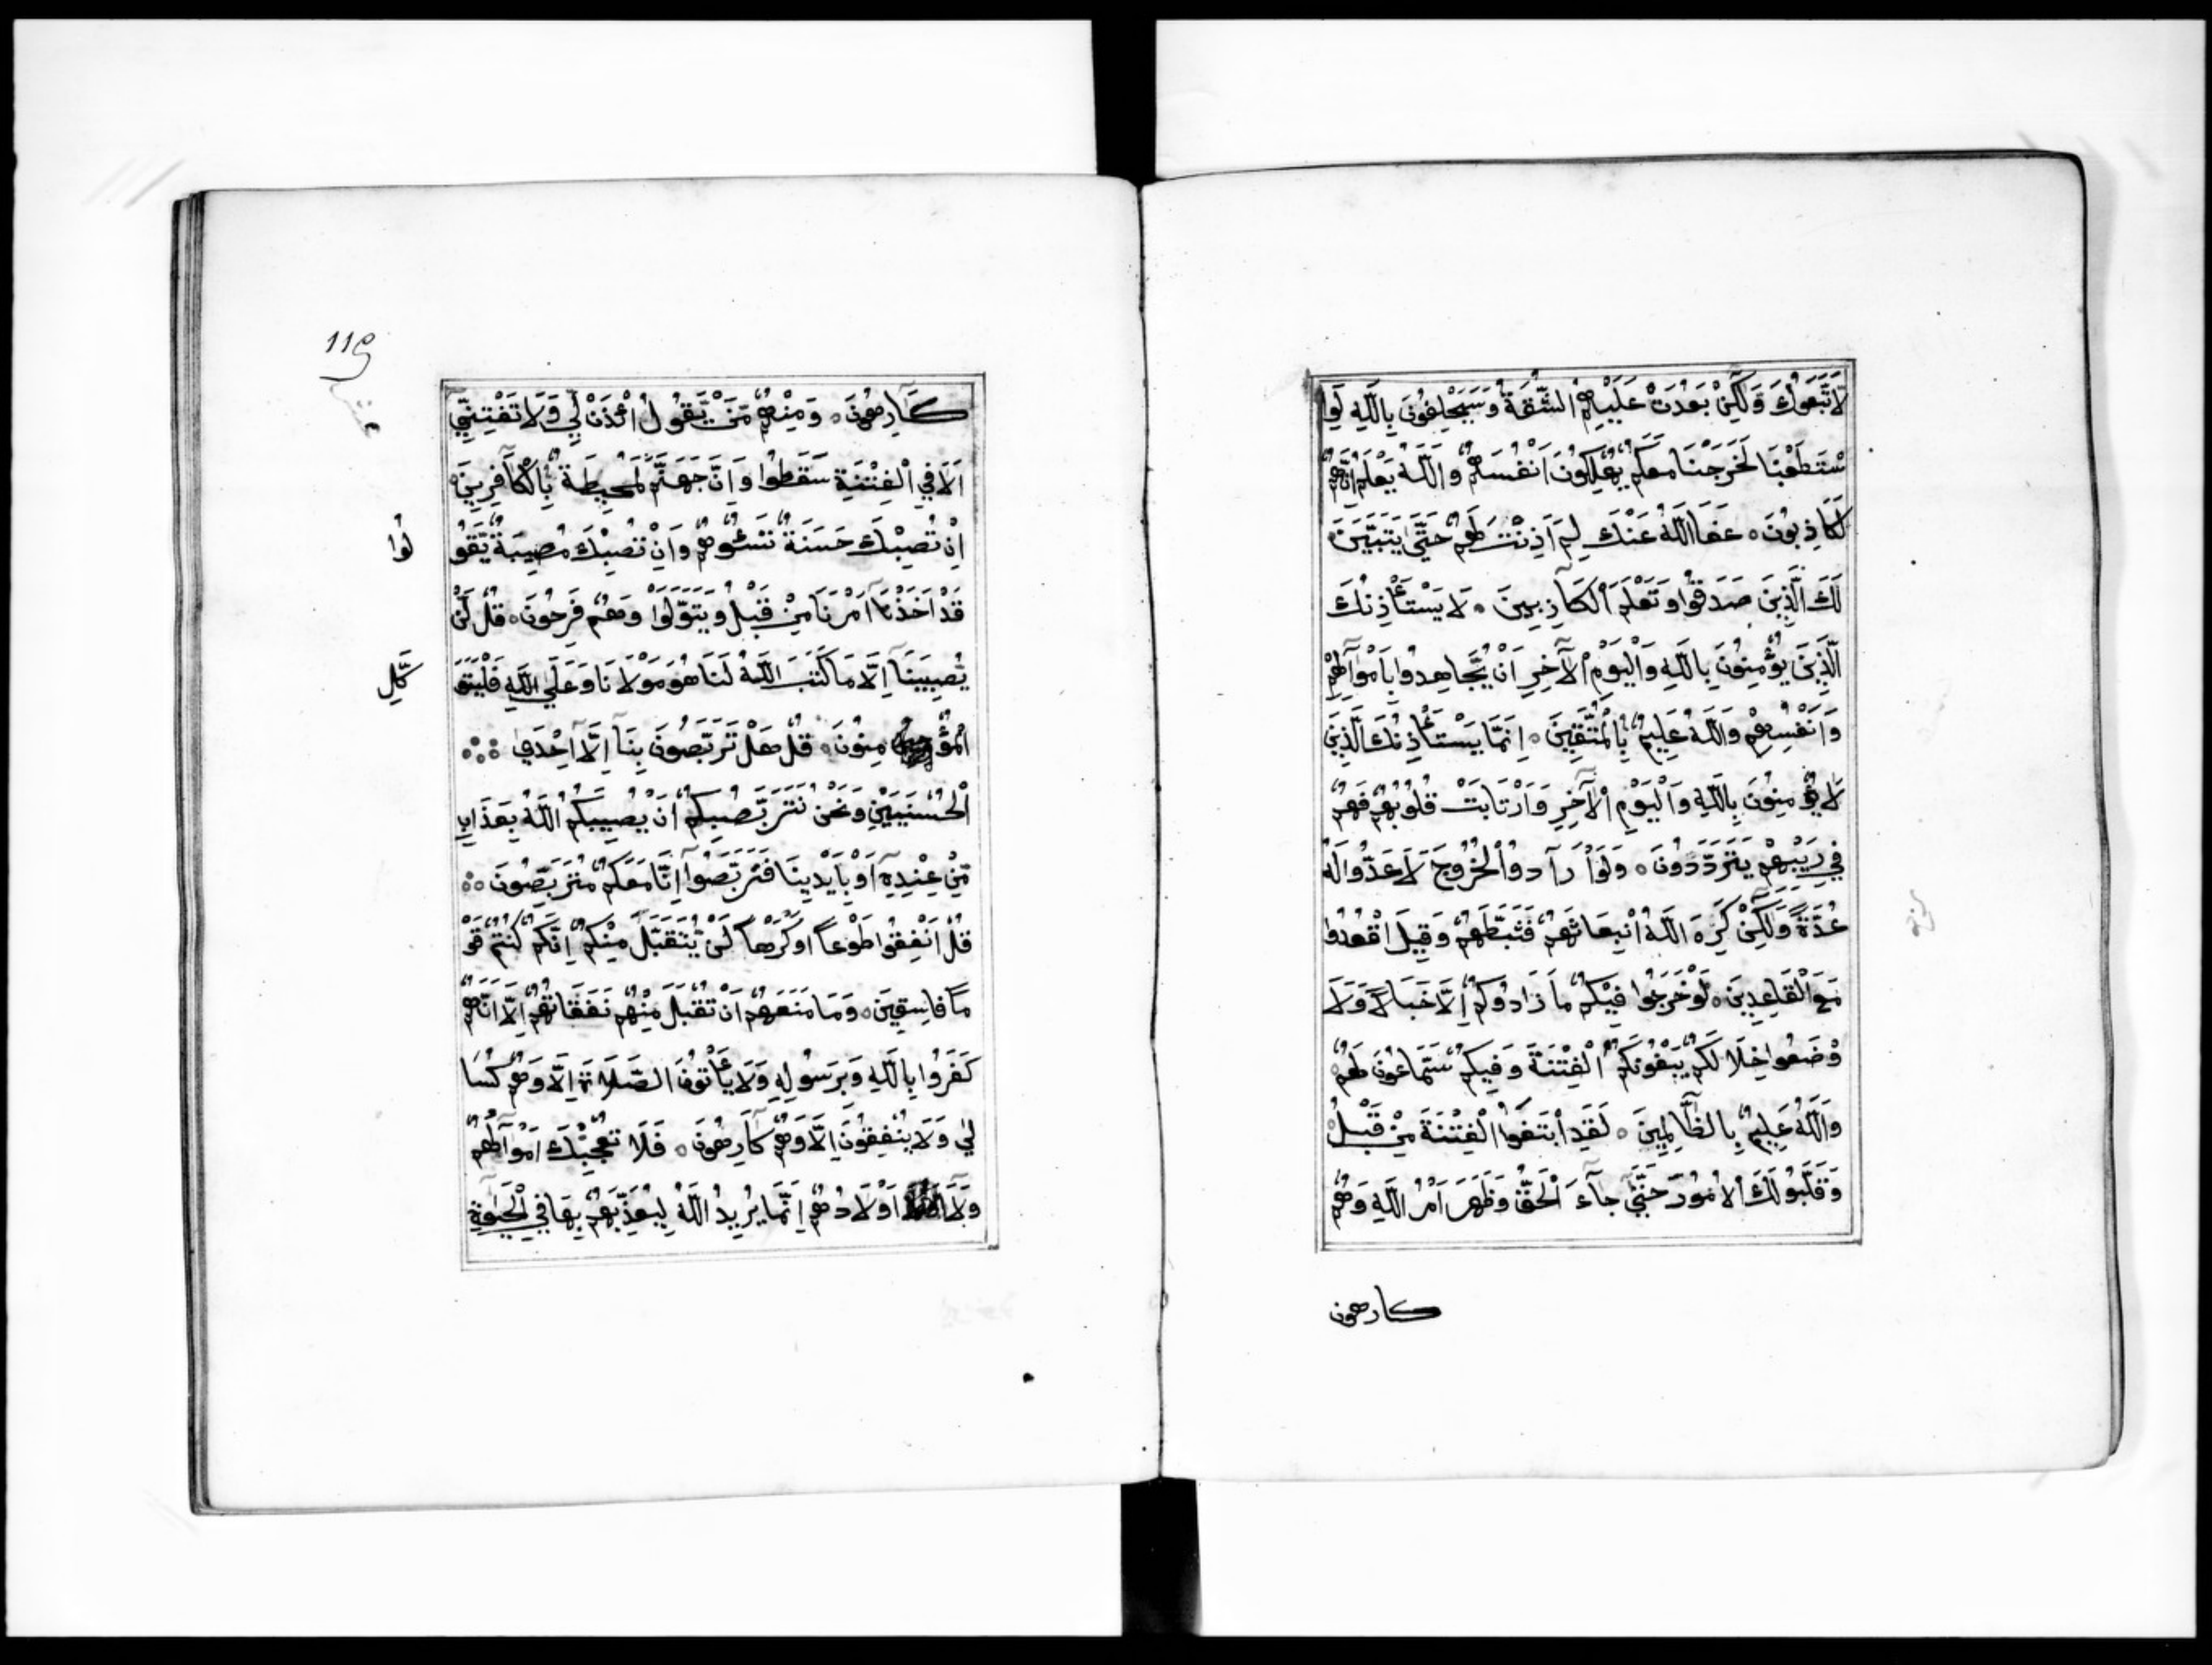 لَاتَّبَعُوكَ وَلَكِنْ بَعُدَتْ عَلَيْهِمُ الشُّقَّةُ وَسَيَحْلِفُونَ بِاللَّهِ لَوِا
سْتَطَعْنَا لَخَرَجْنَا مَعَكُمْ يُهْلِكُونَ اَنْفُسَهُمْ وَاللَّهُ يَعْلَمُ اِنَّهُمْ
لَكَاذِبُونَ ۰ عَفَا اللَّهُ عَنْكَ لِمَ اَذِنْتَ لَهُمْ حَتَّى يَتَبَيَّنَ
لَكَ الَّذِينَ صَدَقُوا وَتَعْلَمَ الْكَاذِبِينَ ۰ لَا يَسْتَأْذِنُكَ
الَّذِينَ يُؤْمِنُونَ بِاللَّهِ وَالْيَوْمِ الْآخِرِ اَنْ يُّجَاهِدُوا بِاَمْوَآلِهِمْ
وَاَنْفُسِهِمْ وَاللَّهُ عَلِيمٌ بِالْمُتَّقِينَ ۰ اِنَّمَا يَسْتَأْذِنُكَ الَّذِينَ
لَا يُؤْمِنُونَ بِاللَّهِ وَالْيَوْمِ الْآخِرِ وَارْتَابَتْ قُلُوبُهُمْ فَهُمْ
فِي رَيْبِهِمْ يَتَرَدَّدُونَ ۰ وَلَوْ اَرَآدُوا الْخُرُوجَ لَاَعَدُّوا لَهُ
عُدَّةً وَلَكِنْ كَرِهَ اللَّهُ انْبِعَاثَهُمْ فَثَبَّطَهُمْ وَقِيلَ اقْعُدُوا
مَعَ الْقَاعِدِينَ ۰ لَوْ خَرَجُوا فِيكُمْ مَا زَادُوكُمْ اِلَّا خَبَالًا وَلَا
وْضَعُوا خِلَالَكُمْ يَبْغُونَكُمُ الْفِتْنَةَ وَفِيكُمْ سَمَّاعُونَ لَهُمْ
وَاللَّهُ عَلِيمٌ بِالظَّالِمِينَ ۰ لَقَدِ ابْتَغَوُا الْفِتْنَةَ مِنْ قَبْلُ
وَقَلَّبُوا لَكَ الْاُمُورَ حَتَّى جَآءَ الْحَقُّ وَظَهَرَ اَمْرُ اللَّهِ وَهُمْ
كارهون
119
كَارِهُونَ ۰ وَمِنْهُمْ مَّنْ يَّقُولُ ائْذَنْ لِّي وَلَا تَفْتِنِّي
اَلَا فِي الْفِتْنَةِ سَقَطُوا وَاِنَّ جَهَنَّمَ لَمُحِيطَةٌ بِالْكَافِرِينَ
اِنْ تُصِبْكَ حَسَنَةٌ تَسُؤْهُمْ وَاِنْ تُصِبْكَ مُصِيبَةٌ يَّقُو
لُوا
قَدْ اَخَذْنَا اَمْرَنَا مِنْ قَبْلُ وَيَتَوَلَّوْا وَهُمْ فَرِحُونَ ۰ قُلْ لَنْ
يُصِيبَنَا اِلَّا مَا كَتَبَ اللَّهُ لَنَا هُوَ مَوْلَانَا وَعَلَى اللَّهِ فَلْيَتَوَ
كَّلِ
الْمُؤْمِنُونَ ۰ قُلْ هَلْ تَرَبَّصُونَ بِنَا اِلَّا اِحْدَي
الْحُسْنَيَيْنِ وَنَحْنُ نَتَرَبَّصُ بِكُمْ اَنْ يُصِيبَكُمُ اللَّهُ بِعَذَابٍ
مِّنْ عِنْدِهِ اَوْ بِاَيْدِينَا فَتَرَبَّصُوا اِنَّا مَعَكُمْ مُتَرَبِّصُونَ
قُلْ اَنْفِقُوا طَوْعًا اَوْ كَرْهًا لَنْ يُّتَقَبَّلَ مِنْكُمْ اِنَّكُمْ كُنْتُمْ قَوْ
مًا فَاسِقِينَ ۰ وَمَا مَنَعَهُمْ اَنْ تُقْبَلَ مِنْهُمْ نَفَقَاتُهُمْ اِلَّا اَنَّهُمْ
كَفَرُوا بِاللَّهِ وَبِرَسُولِهِ وَلَا يَأْتُونَ الصَّلَاةَ اِلَّا وَهُمْ كُسَا
لَى وَلَا يُنْفِقُونَ اِلَّا وَهُمْ كَارِهُونَ ۰ فَلَا تُعْجِبْكَ اَمْوَالُهُمْ
وَلَا اَوْلَادُهُمْ اِنَّمَا يُرِيدُ اللَّهُ لِيُعَذِّبَهُمْ بِهَا فِي الْحَيٰوةِ